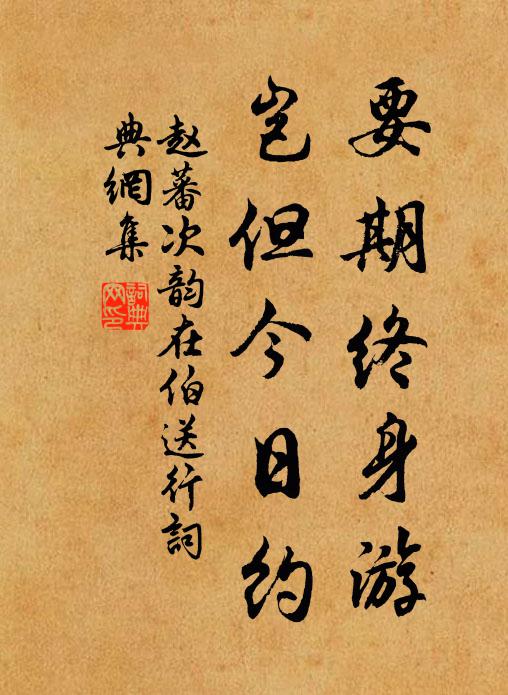 要期终身游
岂但今日约
赵蕃次韵在伯送行词
典網集
詞典
网印